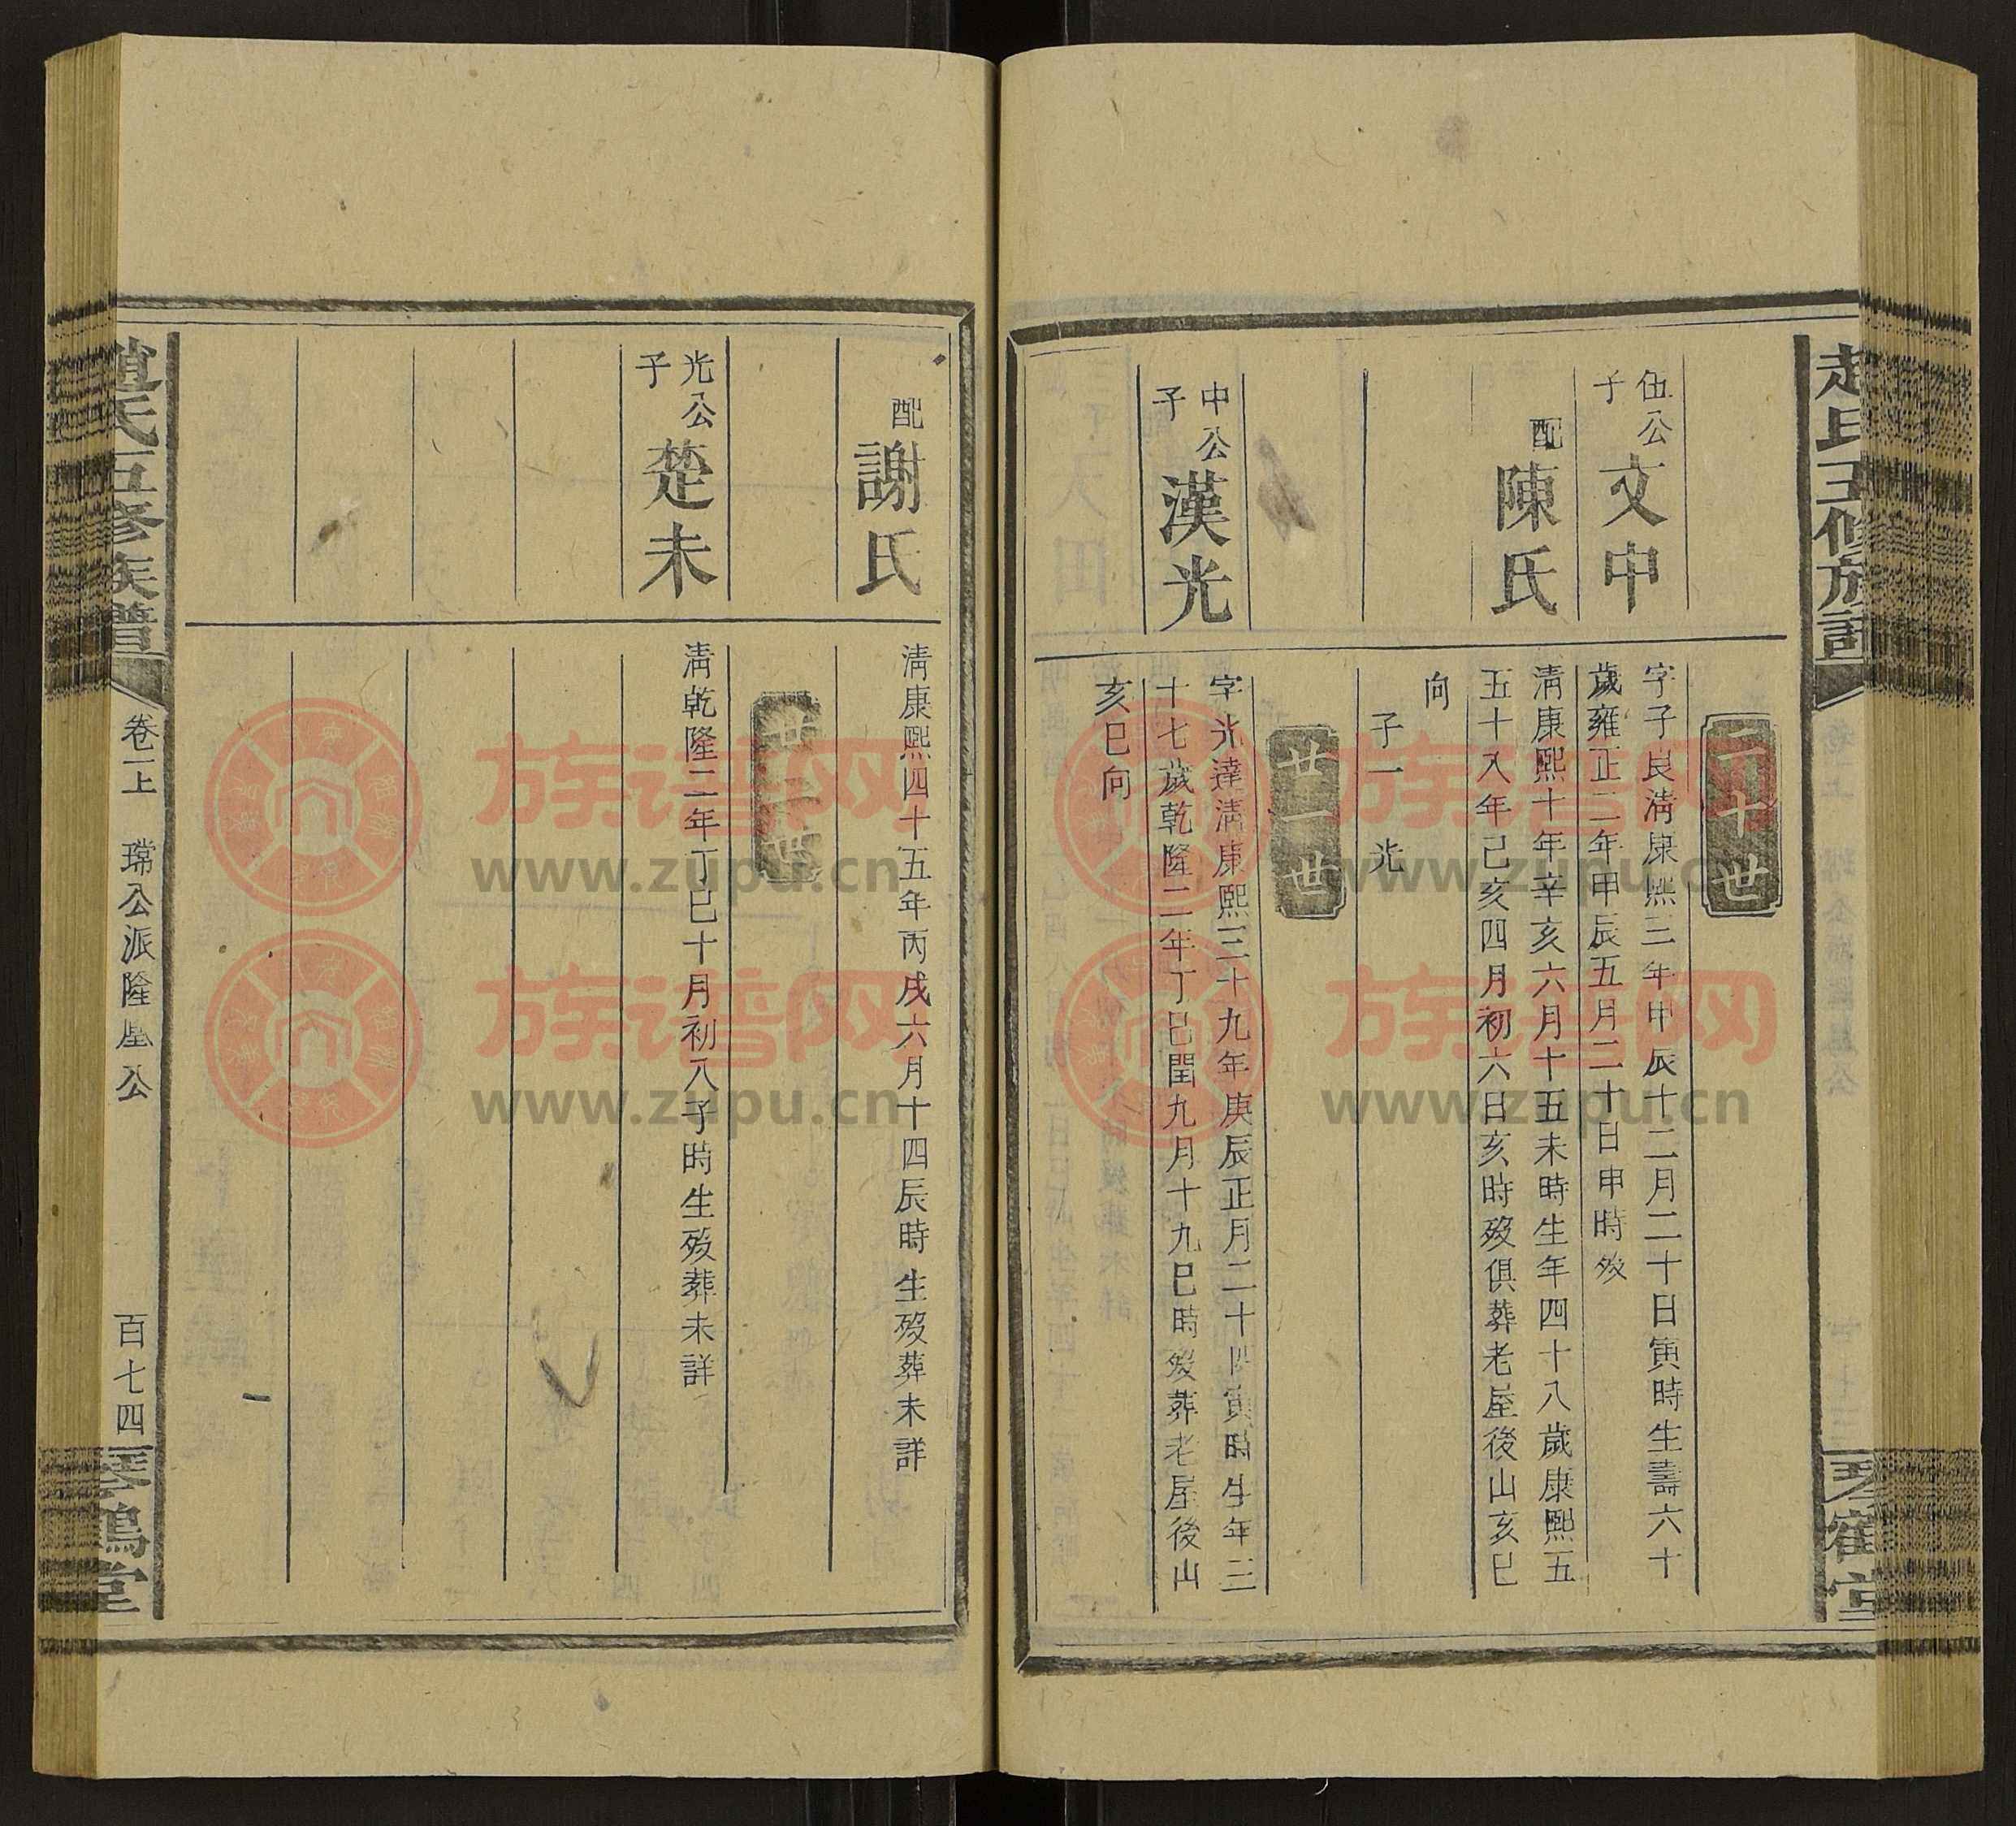 趙氏五修族譜
琴鶴堂
二十世
伍公子
文中
字子良淸康熙三年甲辰十二月二十日寅時生壽六十
歲雍正二年甲辰五月二十日申時歿
配陳氏
淸康熙十年辛亥六月十五未時生年四十八歲康熙五
五十八年己亥四月初六日亥時歿俱葬老屋後山亥巳
向
子一 光
廿一世
中公子
漢光
字光達淸康熙三十九年庚辰正月二十四寅時生年三
十七歲乾隆二年丁巳閏九月十九巳時歿葬老屋後山
亥巳向
配謝氏
淸康熙四十五年丙戌六月十四辰時生歿葬未詳
廿二世
光公子
楚未
淸乾隆二年丁巳十月初八子時生歿葬未詳
趙氏五修族譜
卷一上 瑺公派隆凰公
百七四
琴鶴堂
族谱网
www.zupu.cn
族谱网
www.zupu.cn
族谱网
www.zupu.cn
族谱网
www.zupu.cn